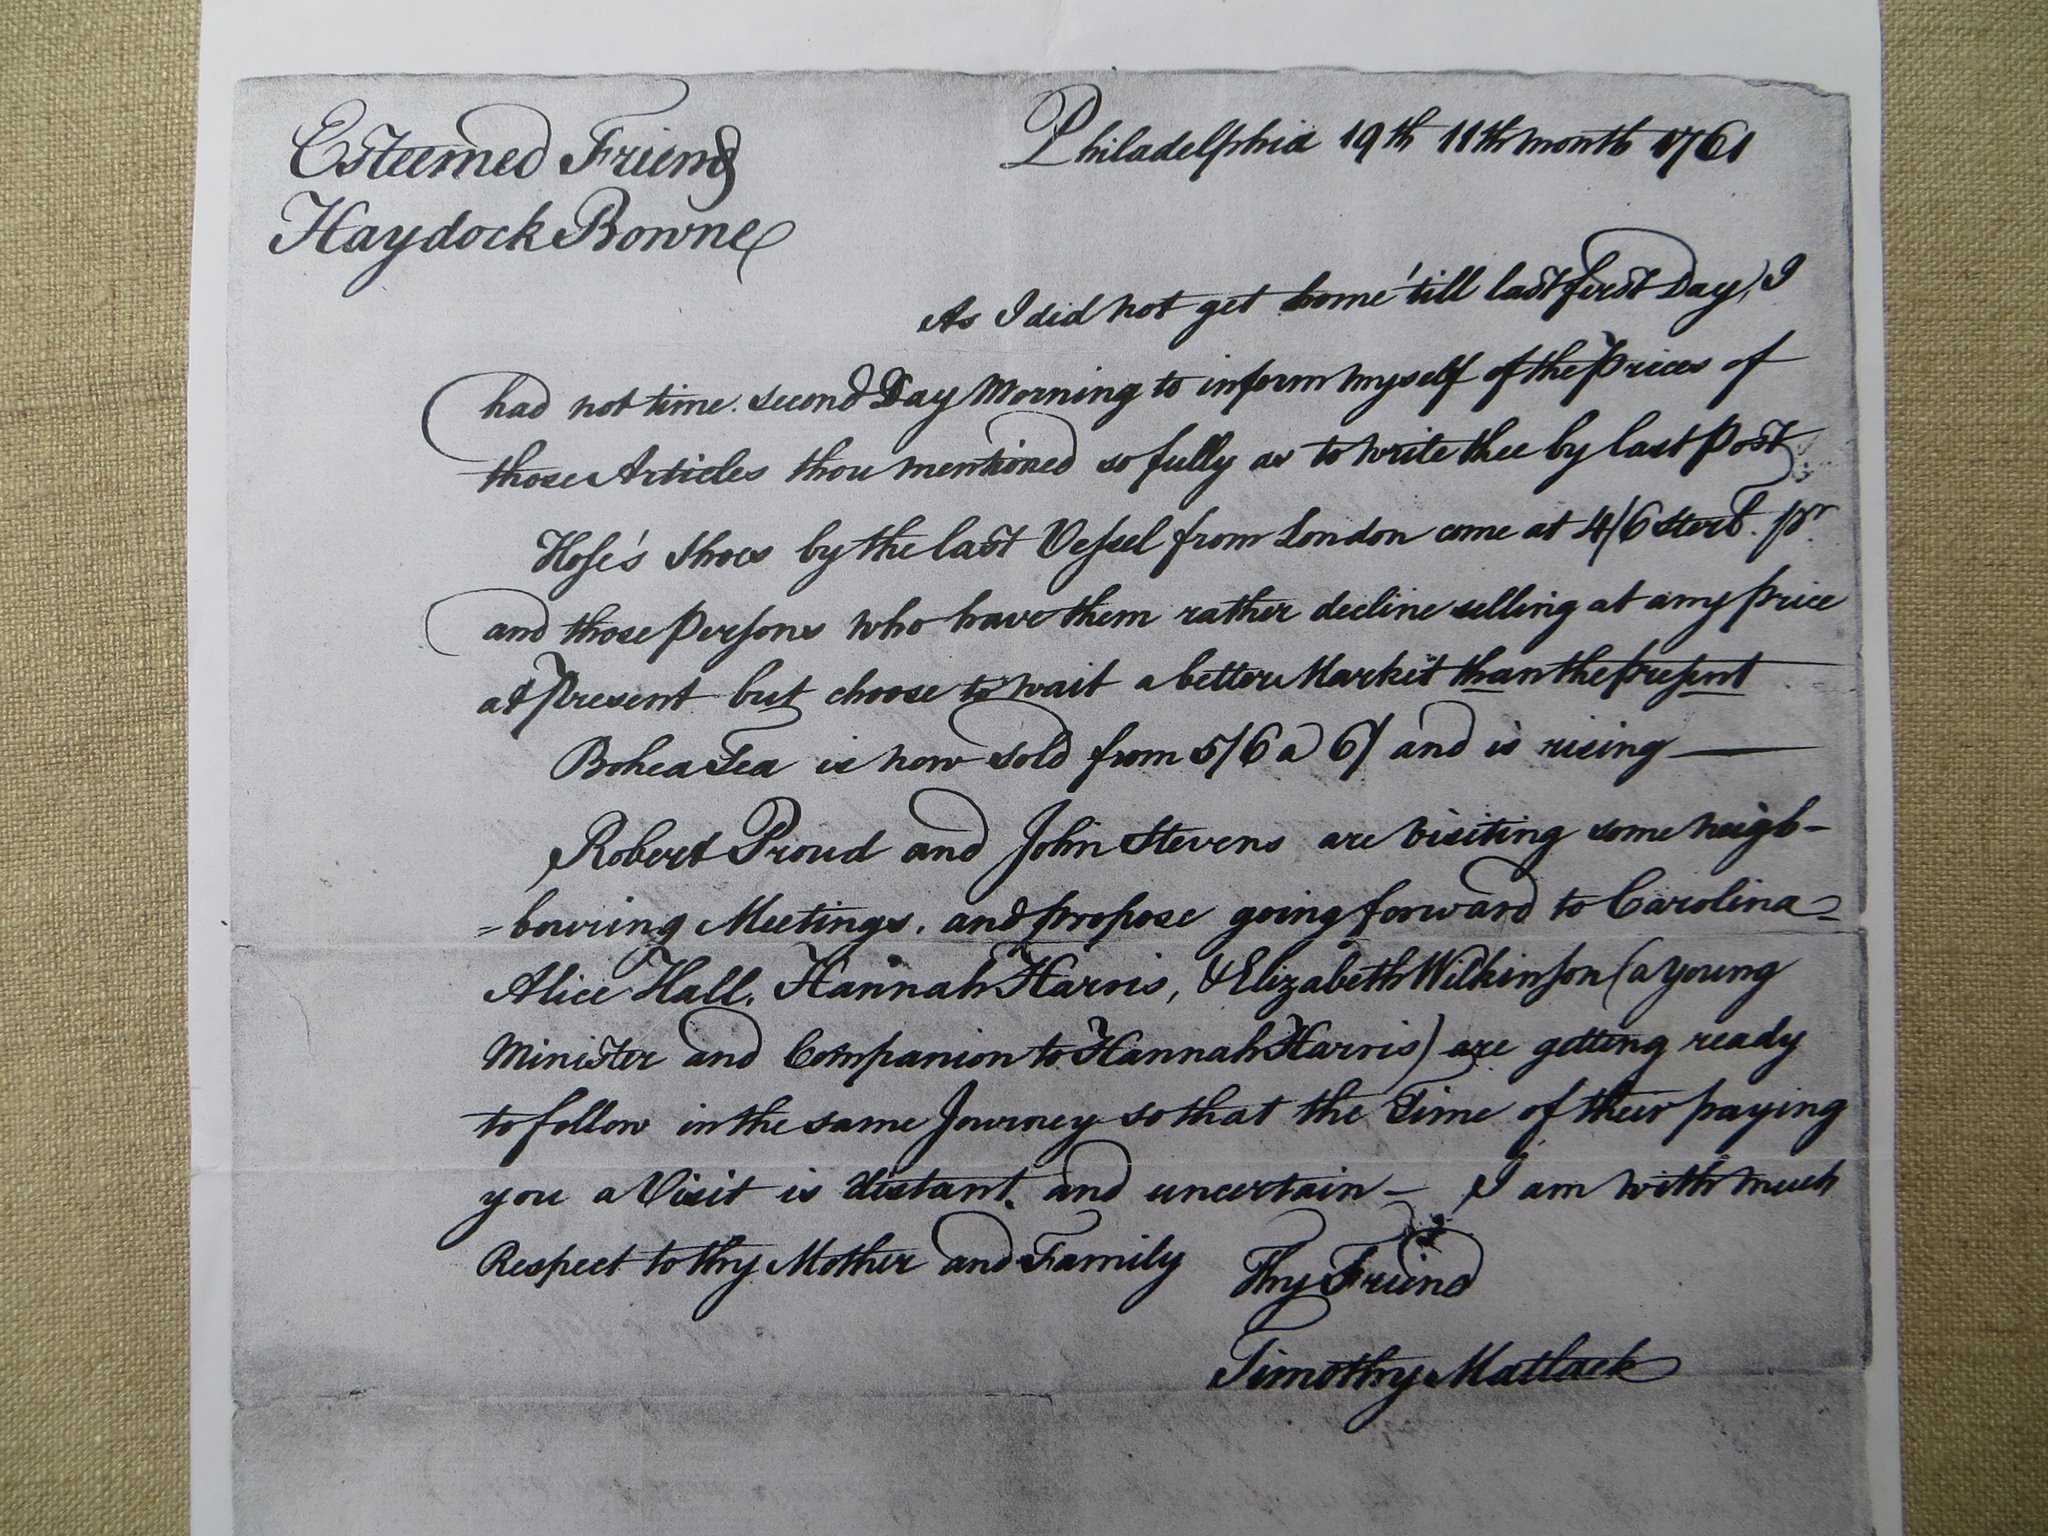 Esteemed Friend
Philadelphia 19th 11th month 1761
Haydock Bowne
As I did not get home 'till last first Day, I
had not time second Day Morning to inform myself of the Prices of
those Articles thou mentioned so fully as to write thee by last Post
Hose's Shoes by the last Vessel from London come at 4/6 Sterl. pr
and those Persons who have them rather decline selling at any price
at Present but choose to wait a better Market than the present
Bohea Tea is now sold from 5/6 a 6/ and is rising —
Robert Proud and John Stevens are Visiting some neigh-
-bouring Meetings, and propose going forward to Carolina
Alice Hall, Hannah Harris, & Elizabeth Wilkinson (a young
Minister and Companion to Hannah Harris) are getting ready
to follow in the same Journey so that the Time of their paying
you a Visit is distant, and uncertain — I am with much
Respect to thy Mother and Family Thy Friend
Timothy Matlack